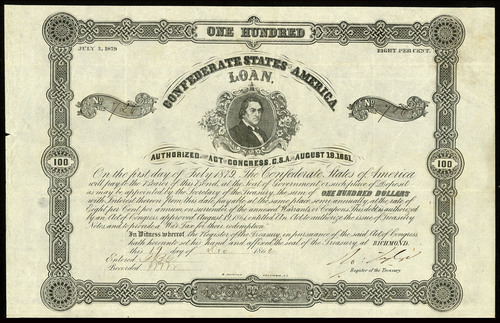 ONE HUNDRED
JULY 1, 1879
EIGHT PER CENT.
CONFEDERATE STATES AMERICA
LOAN.
No
No
AUTHORIZED ACT CONGRESS, C.S.A. AUGUST 19, 1861.
100
100
On the first day of July 1879, The Confederate States of America
will pay to the Bearer of this Bond, at the Seat of Government or such place of Deposit
as may be appointed by the Secretary of the Treasury, the sum of ONE HUNDRED DOLLARS
with Interest thereon from this date payable at the same place semi annually, at the rate of
Eight per Cent per annum on surrender of the annexed Warrants or Coupons. This debt is authorized
by an Act of Congress approved August 19, 1861, entitled An Act to authorize the issue of Treasury
Notes, and to provide a War Tax for their redemption.
In Witness whereof, the Register of the Treasury, in pursuance of the said Act of Congress
hath hereunto set his hand and affixed the seal of the Treasury at RICHMOND.
this day of Dec 1862
Entered
Recorded
Register of the Treasury.